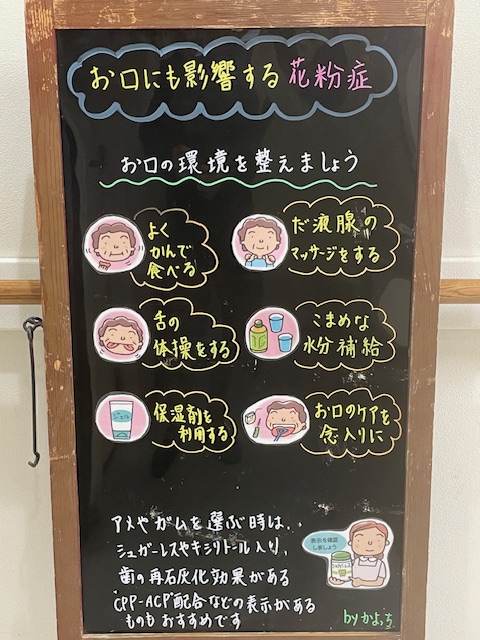 お口にも影響する花粉症
お口の環境を整えましょう
よく
かんで
食べる
だ液腺の
マッサージをする
舌の
体操をする
こまめな
水分補給
保湿剤を
利用する
お口のケアを
念入りに
ジェル
アメやガムを選ぶ時は、
シュガーレスやキシリトール入り、
歯の再石灰化効果がある
CPP-ACP配合などの表示がある
ものもおすすめです
表示を確認
しましょう
byかよっち